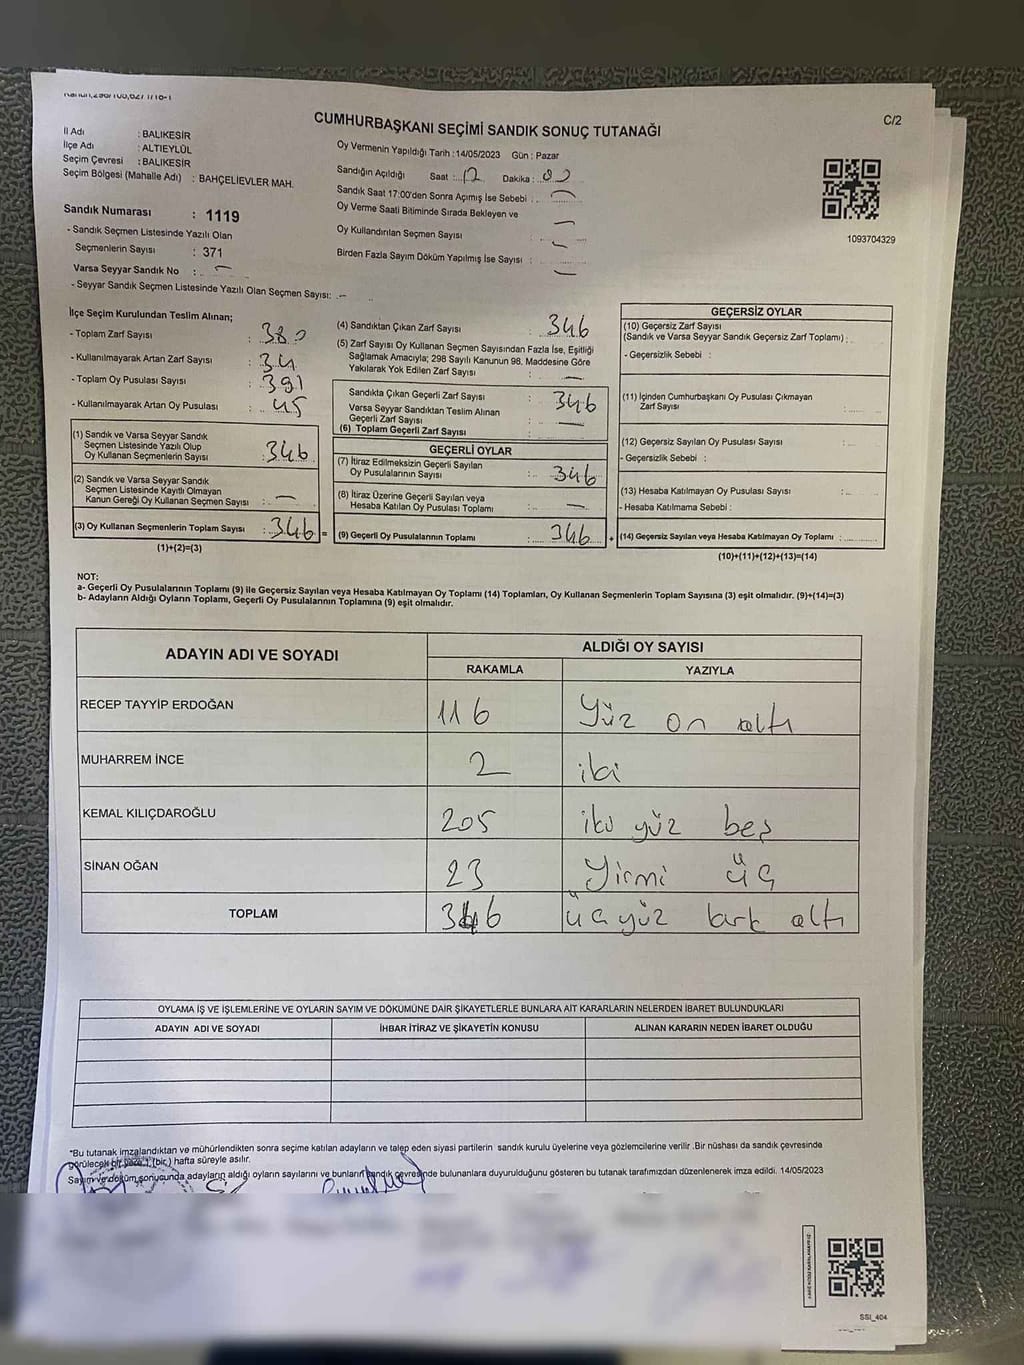 C/2
CUMHURBAŞKANI SEÇİMİ SANDIK SONUÇ TUTANAĞI
İl Adı : BALIKESİR
İlçe Adı : ALTIEYLÜL
Seçim Çevresi : BALIKESİR
Seçim Bölgesi (Mahalle Adı) : BAHÇELİEVLER MAH.
Sandık Numarası : 1119
- Sandık Seçmen Listesinde Yazılı Olan
Seçmenlerin Sayısı : 371
Varsa Seyyar Sandık No : -
- Seyyar Sandık Seçmen Listesinde Yazılı Olan Seçmen Sayısı: -
Oy Vermenin Yapıldığı Tarih :14/05/2023 Gün : Pazar
Sandığın Açıldığı Saat : Dakika :
Sandık Saat 17:00'den Sonra Açımış İse Sebebi : -
Oy Verme Saati Bitiminde Sırada Bekleyen ve
Oy Kullandırılan Seçmen Sayısı : -
Birden Fazla Sayım Döküm Yapılmış İse Sayısı : -
1093704329
İlçe Seçim Kurulundan Teslim Alınan;
- Toplam Zarf Sayısı : 380
- Kullanılmayarak Artan Zarf Sayısı : 34
- Toplam Oy Pusulası Sayısı : 391
- Kullanılmayarak Artan Oy Pusulası : 45
(1) Sandık ve Varsa Seyyar Sandık
Seçmen Listesinde Yazılı Olup
Oy Kullanan Seçmenlerin Sayısı : 346
(2) Sandık ve Varsa Seyyar Sandık
Seçmen Listesinde Kayıtlı Olmayan
Kanun Gereği Oy Kullanan Seçmen Sayısı : -
(3) Oy Kullanan Seçmenlerin Toplam Sayısı : 346 =
(1)+(2)=(3)
(4) Sandıktan Çıkan Zarf Sayısı : 346
(5) Zarf Sayısı Oy Kullanan Seçmen Sayısından Fazla İse, Eşitliği
Sağlamak Amacıyla; 298 Sayılı Kanunun 98. Maddesine Göre
Yakılarak Yok Edilen Zarf Sayısı : -
Sandıkta Çıkan Geçerli Zarf Sayısı : 346
Varsa Seyyar Sandıktan Teslim Alınan
Geçerli Zarf Sayısı : -
(6) Toplam Geçerli Zarf Sayısı :
GEÇERLİ OYLAR
(7) İtiraz Edilmeksizin Geçerli Sayılan
Oy Pusulalarının Sayısı : 346
(8) İtiraz Üzerine Geçerli Sayılan veya
Hesaba Katılan Oy Pusulası Toplamı : -
(9) Geçerli Oy Pusulalarının Toplamı : 346 +
GEÇERSİZ OYLAR
(10) Geçersiz Zarf Sayısı
(Sandık ve Varsa Seyyar Sandık Geçersiz Zarf Toplamı) :
- Geçersizlik Sebebi :
(11) İçinden Cumhurbaşkanı Oy Pusulası Çıkmayan
Zarf Sayısı :
(12) Geçersiz Sayılan Oy Pusulası Sayısı :
- Geçersizlik Sebebi :
(13) Hesaba Katılmayan Oy Pusulası Sayısı :
- Hesaba Katılmama Sebebi :
(14) Geçersiz Sayılan veya Hesaba Katılmayan Oy Toplamı :
(10)+(11)+(12)+(13)=(14)
NOT:
a- Geçerli Oy Pusulalarının Toplamı (9) ile Geçersiz Sayılan veya Hesaba Katılmayan Oy Toplamı (14) Toplamları, Oy Kullanan Seçmenlerin Toplam Sayısına (3) eşit olmalıdır. (9)+(14)=(3)
b- Adayların Aldığı Oyların Toplamı, Geçerli Oy Pusulalarının Toplamına (9) eşit olmalıdır.
ADAYIN ADI VE SOYADI ALDIĞI OY SAYISI
RAKAMLA YAZIYLA
RECEP TAYYİP ERDOĞAN 116 Yüz on altı
MUHARREM İNCE 2 iki
KEMAL KILIÇDAROĞLU 205 iki yüz beş
SİNAN OĞAN 23 Yirmi üç
TOPLAM 346 üçyüz kırk altı
OYLAMA İŞ VE İŞLEMLERİNE VE OYLARIN SAYIM VE DÖKÜMÜNE DAİR ŞİKAYETLERLE BUNLARA AİT KARARLARIN NELERDEN İBARET BULUNDUKLARI
ADAYIN ADI VE SOYADI İHBAR İTİRAZ VE ŞİKAYETİN KONUSU ALINAN KARARIN NEDEN İBARET OLDUĞU
*Bu tutanak imzalandıktan ve mühürlendikten sonra seçime katılan adayların ve talep eden siyasi partilerin sandık kurulu üyelerine veya gözlemcilerine verilir .Bir nüshası da sandık çevresinde
görülecek bir yere 1 (bir ) hafta süreyle asılır.
Sayım ve döküm sonucunda adayların aldığı oyların sayılarını ve bunların sandık çevresinde bulunanlara duyurulduğunu gösteren bu tutanak tarafımızdan düzenlenerek imza edildi. 14/05/2023
SSI_404